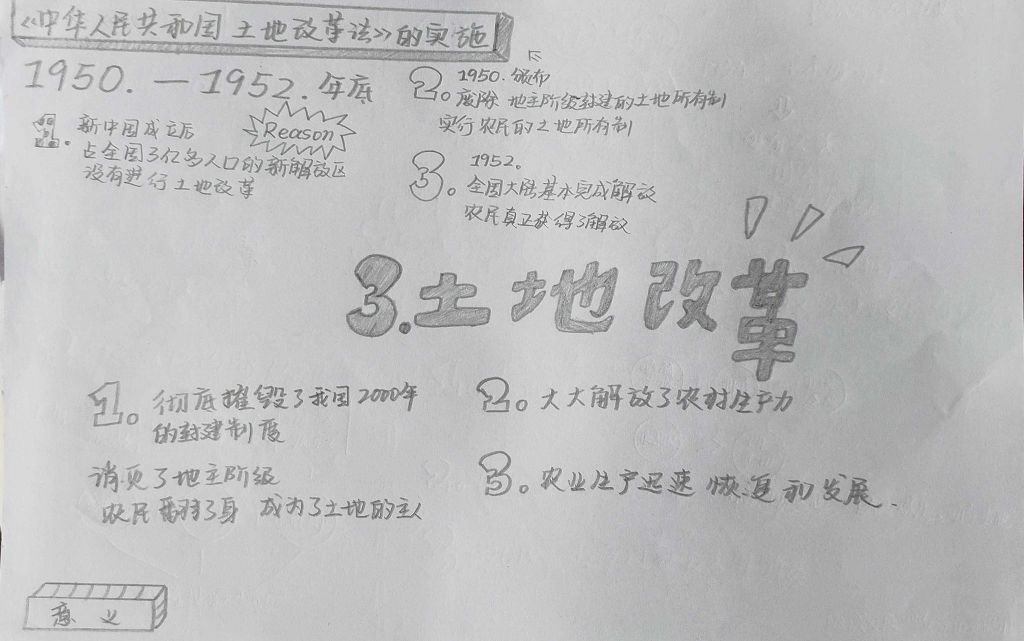 《中华人民共和国土地改革法》的实施
1950.—1952.年底
1.
新中国成立后
占全国3亿多人口的新解放区
没有进行土地改革
Reason
2.
1950.颁布
废除 地主阶级封建的土地所有制
实行农民的土地所有制
3.
1952。
全国大陆基本完成解放
农民真正获得了解放
3.土地改革
1。彻底摧毁了我国2000年
的封建制度
消灭了地主阶级
农民翻了身 成为了土地的主人
2。大大解放了农村生产力
3。农业生产迅速恢复和发展.
意 义